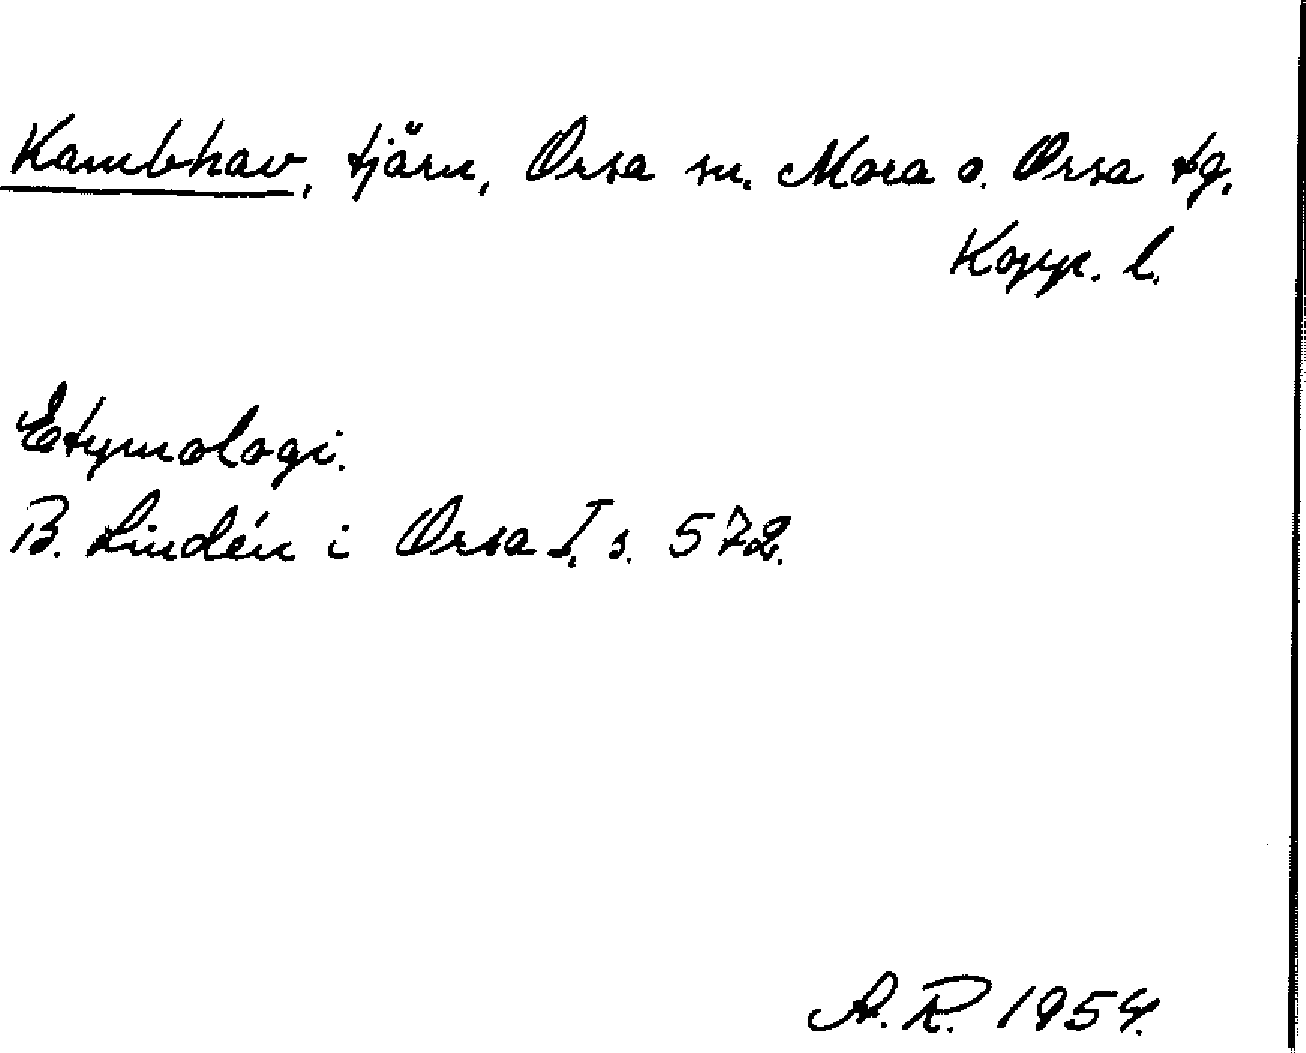 Kambhav, tjärn, Orsa sn. Mora o. Orsa tg.
Kopp. l.
Etymologi.
B. Lindén i Orsa I, s. 572.
A. R. 1954.